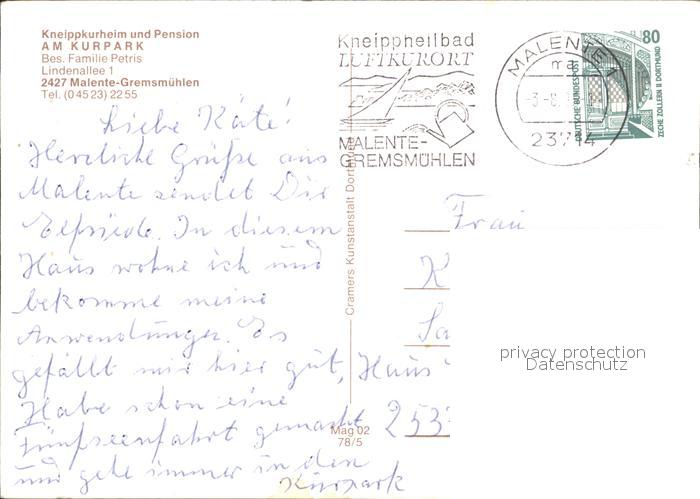 Kneippkurheim und Pension
AM KURPARK
Bes. Familie Petris
Lindenallee 1
2427 Malente-Gremsmühlen
Tel. (0 45 23) 22 55
Kneippheilbad
LUFTKURORT
MALENTE-
GREMSMÜHLEN
MALENTE 1
ma
-3.-8.
23714
80
DEUTSCHE BUNDESPOST
ZECHE ZOLLERN II DORTMUND
Liebe Käte!
Herzliche Grüße aus
Malente sendet Dir
Elfriede. In diesem
Haus wohne ich und
bekomme meine
Anwendungen. Es
gefällt mir hier gut,
Habe schon eine
Fünfseenfahrt gemacht
und gehe immer in den
Kurpark
Cramers Kunstanstalt Dortmund
Mag 02
78/5
Frau
K
Sa
Haus
253
privacy protection
Datenschutz